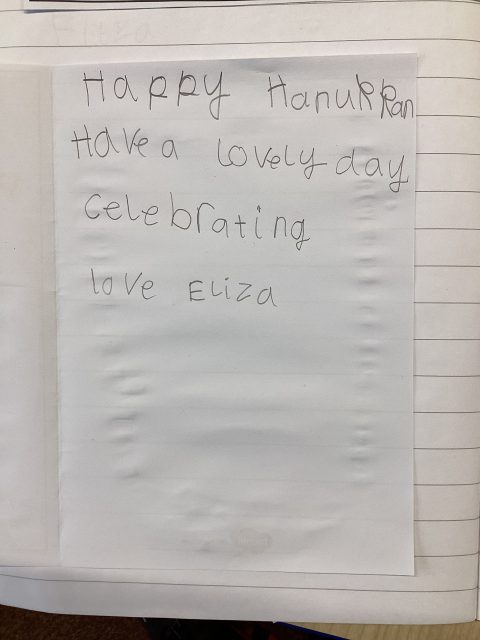 Happy Hanukkan
Have a lovely day
celebrating
love Eliza